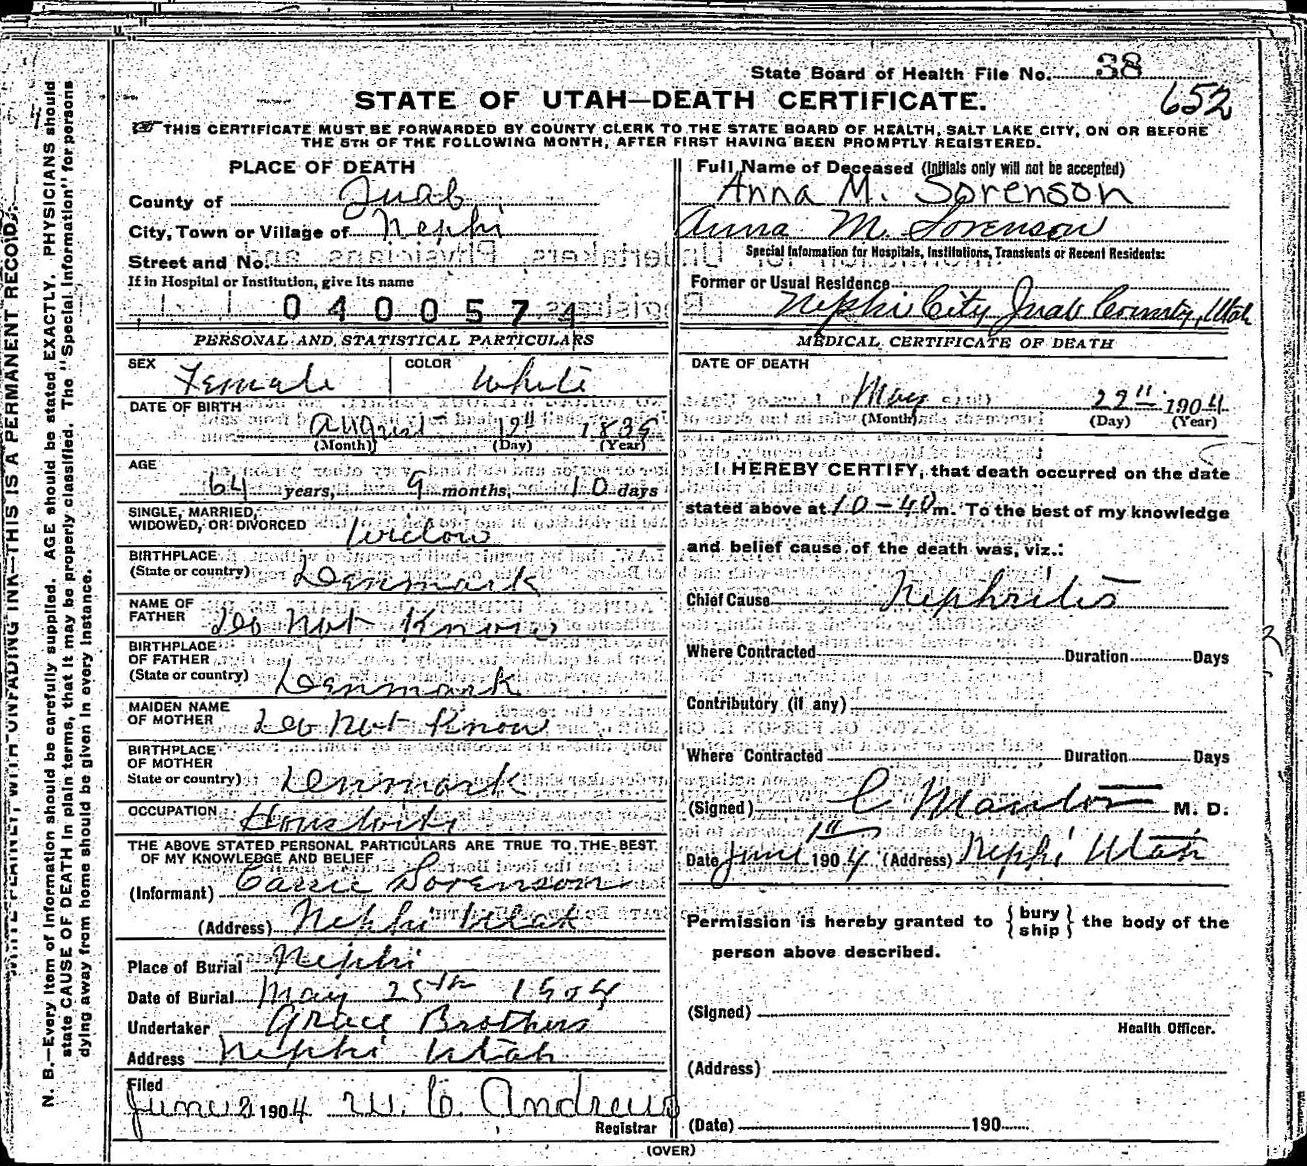 State Board of Health File No. 38
652
STATE OF UTAH—DEATH CERTIFICATE.
THIS CERTIFICATE MUST BE FORWARDED BY COUNTY CLERK TO THE STATE BOARD OF HEALTH, SALT LAKE CITY, ON OR BEFORE
THE 5TH OF THE FOLLOWING MONTH, AFTER FIRST HAVING BEEN PROMPTLY REGISTERED.
PLACE OF DEATH
County of Juab
City, Town or Village of Nephi
Street and No.
If in Hospital or Institution, give its name
0400574
PERSONAL AND STATISTICAL PARTICULARS
SEX Female COLOR White
DATE OF BIRTH
August 19th 1839
(Month) (Day) (Year)
AGE
64 years, 9 months, 10 days
SINGLE, MARRIED,
WIDOWED, OR DIVORCED Widow
BIRTHPLACE
(State or country) Denmark
NAME OF
FATHER Do Not Know
BIRTHPLACE
OF FATHER
(State or country) Denmark
MAIDEN NAME
OF MOTHER Do Not Know
BIRTHPLACE
OF MOTHER
State or country) Denmark
OCCUPATION Housewife
THE ABOVE STATED PERSONAL PARTICULARS ARE TRUE TO THE BEST
OF MY KNOWLEDGE AND BELIEF
(Informant) Carrie Sorenson
(Address) Nephi Utah
Place of Burial Nephi
Date of Burial May 1904
Undertaker Grace Brothers
Address Nephi Utah
Filed
June 2 1904 W. C. Andrews
Registrar
Full Name of Deceased (Initials only will not be accepted)
Anna M. Sorenson
Anna M. Sorenson
Special Information for Hospitals, Institutions, Transients or Recent Residents:
Former or Usual Residence
Nephi City Juab County, Utah
MEDICAL CERTIFICATE OF DEATH
DATE OF DEATH
May 29th 1904
(Month) (Day) (Year)
I HEREBY CERTIFY, that death occurred on the date
stated above at 10-40 m. To the best of my knowledge
and belief cause of the death was, viz.:
Chief Cause Nephritis
Where Contracted Duration Days
Contributory (if any)
Where Contracted Duration Days
(Signed) M. D.
Date June 1st 1904 (Address) Nephi Utah
Permission is hereby granted to {bury
ship} the body of the
person above described.
(Signed)
Health Officer.
(Address)
(Date) 190
(OVER)
WRITE PLAINLY, WITH UNFADING INK—THIS IS A PERMANENT RECORD.
N. B.—Every item of information should be carefully supplied. AGE should be stated EXACTLY. PHYSICIANS should
state CAUSE OF DEATH in plain terms, that it may be properly classified. The "Special Information" for persons
dying away from home should be given in every instance.